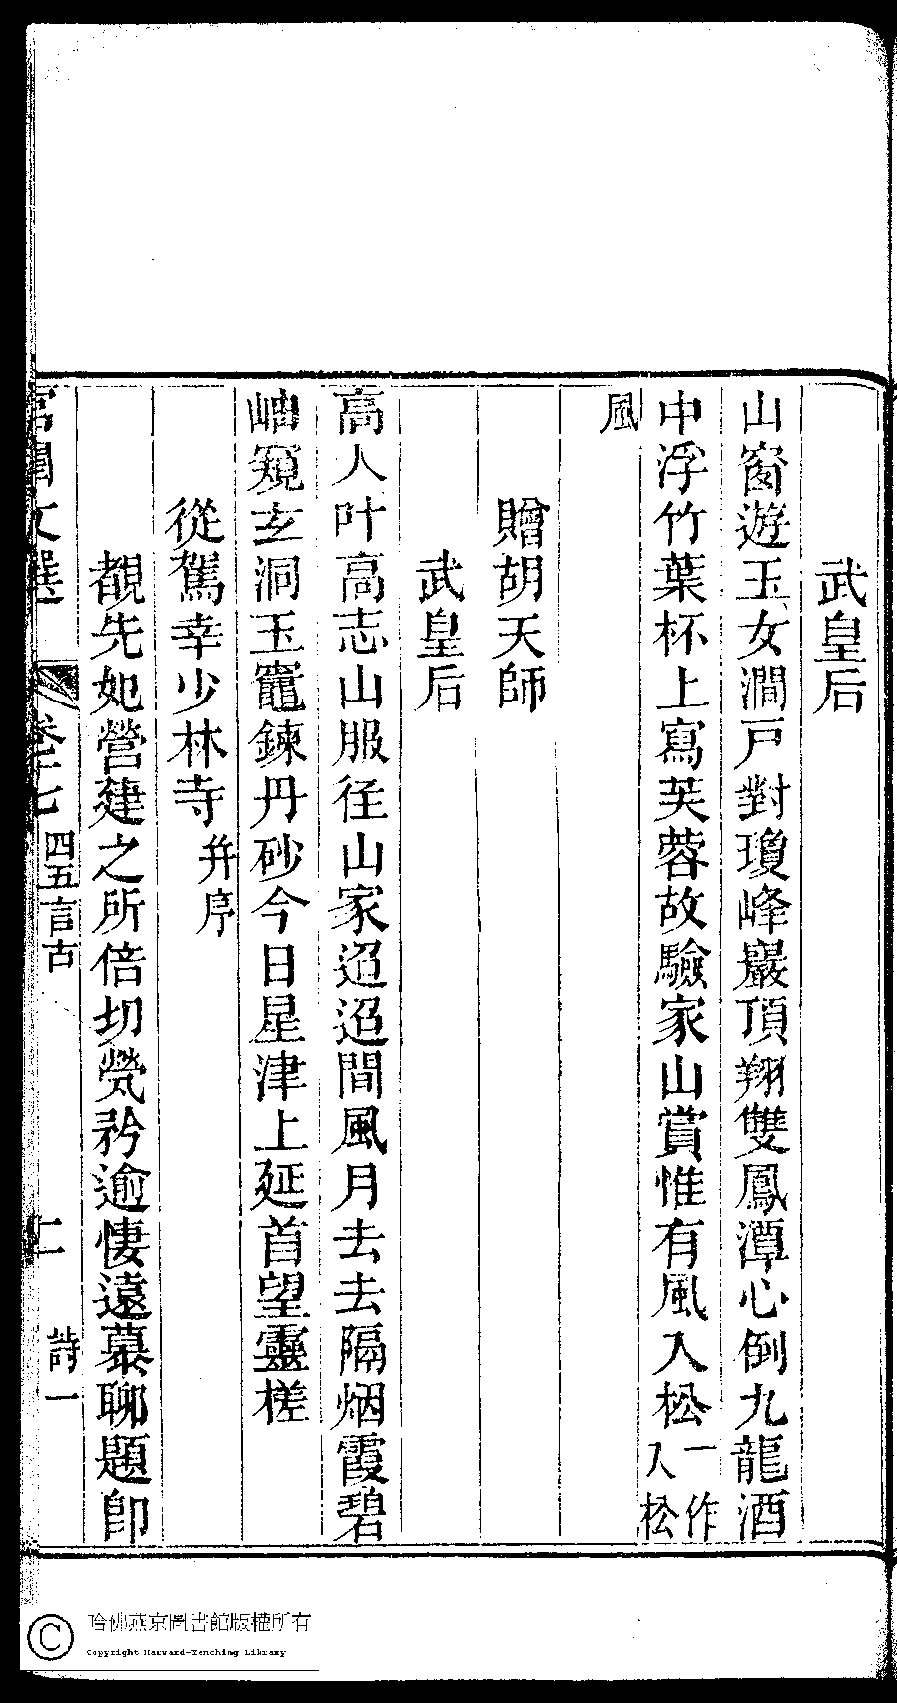 武皇后
山窗遊玉女澗戸對瓊峰巖頂翔雙鳳潭心倒九龍酒
中浮竹葉杯上寫芙蓉故驗家山賞惟有風入松一作入松
風
贈胡天師
武皇后
高人叶高志山服徃山家迢迢間風月去去隔烟霞碧
岫窺玄洞玉竈鍊丹砂今日星津上延首望靈槎
從駕幸少林寺并序
覩先妃營建之所倍切煢衿逾悽遠慕聊題即
宮閨文選 卷十七 四五言古 二 詩一
哈佛燕京圖書館版權所有
Copyright Harvard-Yenching Library